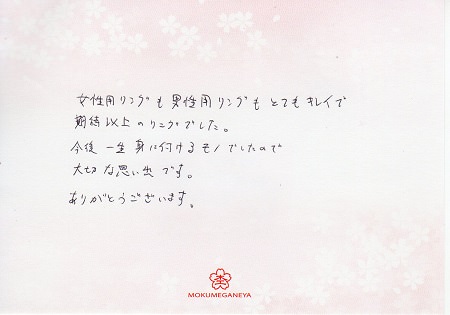 女性用リングも男性用リングもとてもキレイで
期待以上のリングでした。
今後一生身に付けるモノでしたので
大切な思い出です。
ありがとうございます。
MOKUMEGANEYA